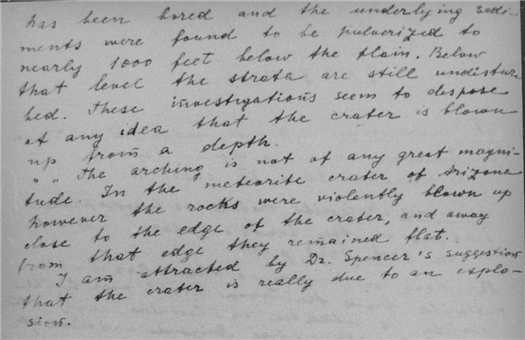 has been bored and the underlying sedi-
ments were found to be pulverized to
nearly 1000 feet below the plain. Below
that level the strata are still undistur
bed. These investigations seem to dispose
of any idea that the crater is blown
up from a depth.
" " The arching is not of any great magni-
tude. In the meteorite crater of Arizona
however the rocks were violently blown up
close to the edge of the crater, and away
from that edge they remained flat.
I am attracted by Dr. Spencer's suggestion
that the crater is really due to an explo-
sion.